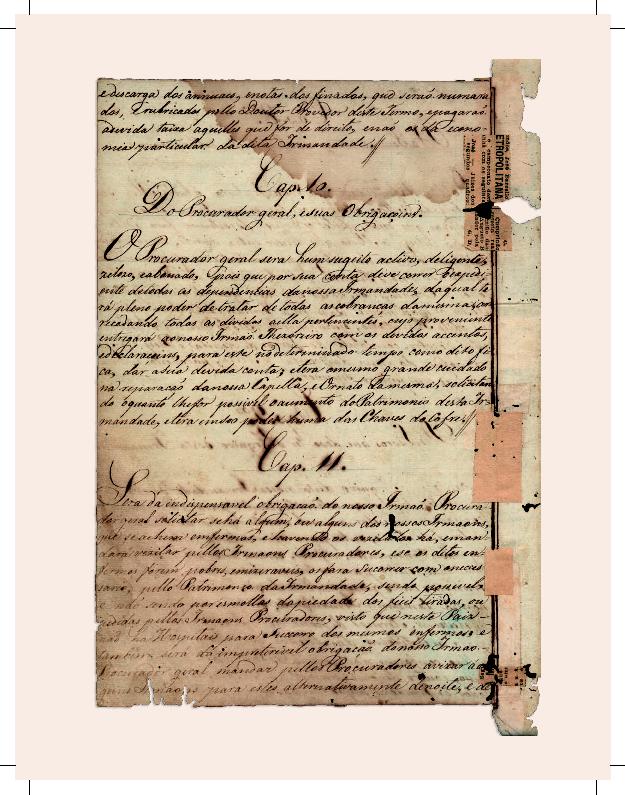 e descarga dos annuaes, enotas dos finados, que seraõ numara
dos, e rubricados pello Doutor Provedor deste Termo, epagaraõ
adevida taixa aquelles que for de direito, enaõ os da econo-
mia particular da dita Irmandade.
Cap. 10.
Do Procurador geral, esuas Obrigaçoins.
O Procurador geral sera hum sugeito activo, deligente,
zelozo, eabonado, pois que por sua conta deve correr
de todas as dependencias danossa Irmandade, daqual te
rá pleno poder de tratar de todas as cobranças damesma, ar
recadando todas as dividas aella pertencentes, cujo proveniente
entregará aonosso Irmaõ Thezoreiro com as devidas accentos,
edeclaracoins, para este no determinado tempo como deso fi
ca, dar asua devida conta; etera omesmo grande cuidado
na reparaçaõ danossa Capella, e Ornato damesma, solicitan
do oquanto lhefor possivel oaumento do Patrimonio desta Ir
mandade, etera em seo poder huma das Chaves do Cofre.
Cap. 11.
Sera da indispensavel obrigaçaõ do nosso Irmaõ Procura
dor geral solicitar se há algum, ou alguns dos nossos Irmaons,
que se achem emfermos, e havendo os há, eman
dara vezitar pellos Irmaons Procuradores, ese os ditos en
fermos forem pobres, emizeraveis, os fara socorrer com oneces
sario, pello Patrimonio da Irmandade, sendo possivel,
e naõ sendo por esmollas dapiedade dos fieis tiradas, ou
pedidas pellos Irmaons Procuradores, visto que neste Paiz
naõ ha Hospital para Succoro dos mesmos infermos, e
tambem será da obrigaçaõ donosso Irmaõ
Procurador geral mandar pellos Procuradores avizar a al
guns Irmaons para estes alternativamente denoite, e de
ETROPOLITANA